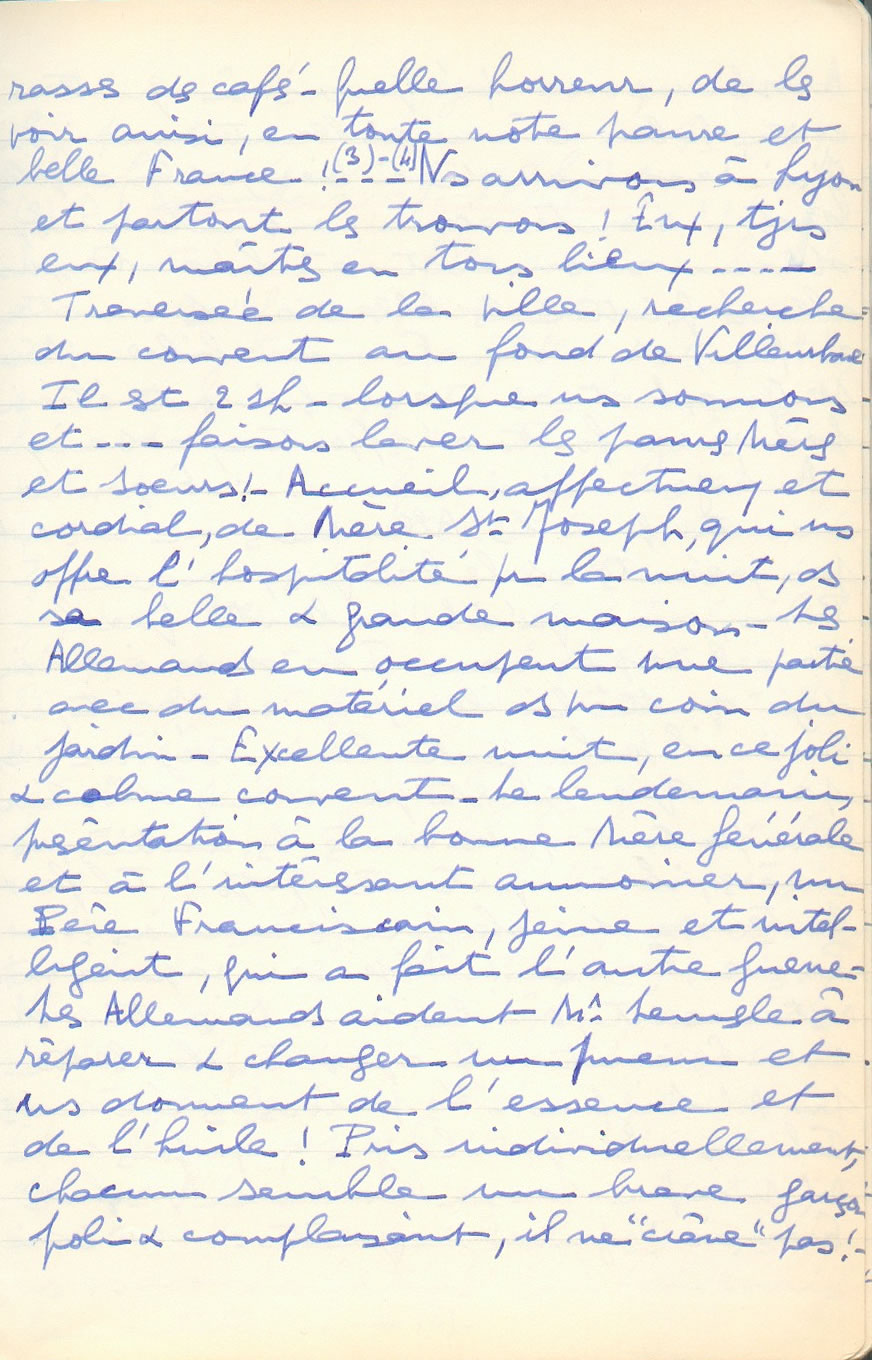 rasses de café - quelle horreur, de les
voir ainsi, en toute notre pauvre et
belle France ! (3)-(4) Ns arrivons à Lyon
et partout les trouvons ! Eux, tjrs
eux, maîtres en tous lieux ----
Traversée de la ville, recherche
du couvent au fond de Villeurbane
Il est 21h - lorsque ns sonnons
et --- faisons lever les pauvres Mères
et soeurs ! - Accueil, affectueux et
cordial, de Mère St Joseph, qui ns
offre l'hospitalité pr la nuit, ds
sa belle & grande maison - Les
Allemands en occupent une partie
avec du matériel ds un coin du
jardin - Excellente nuit, en ce joli
& calme couvent - Le lendemain,
présentation à la bonne Mère Générale
et à l'intéressant aumônier, un
Père Franciscain, jeune et intel-
ligent, qui a fait l'autre guerre -
Les Allemands aident Mr à
réparer & changer un pneu et
ns donnent de l'essence et
de l'huile ! Pris individuellement,
chacun semble un brave garçon
poli & complaisant, il ne "crâne" pas ! -